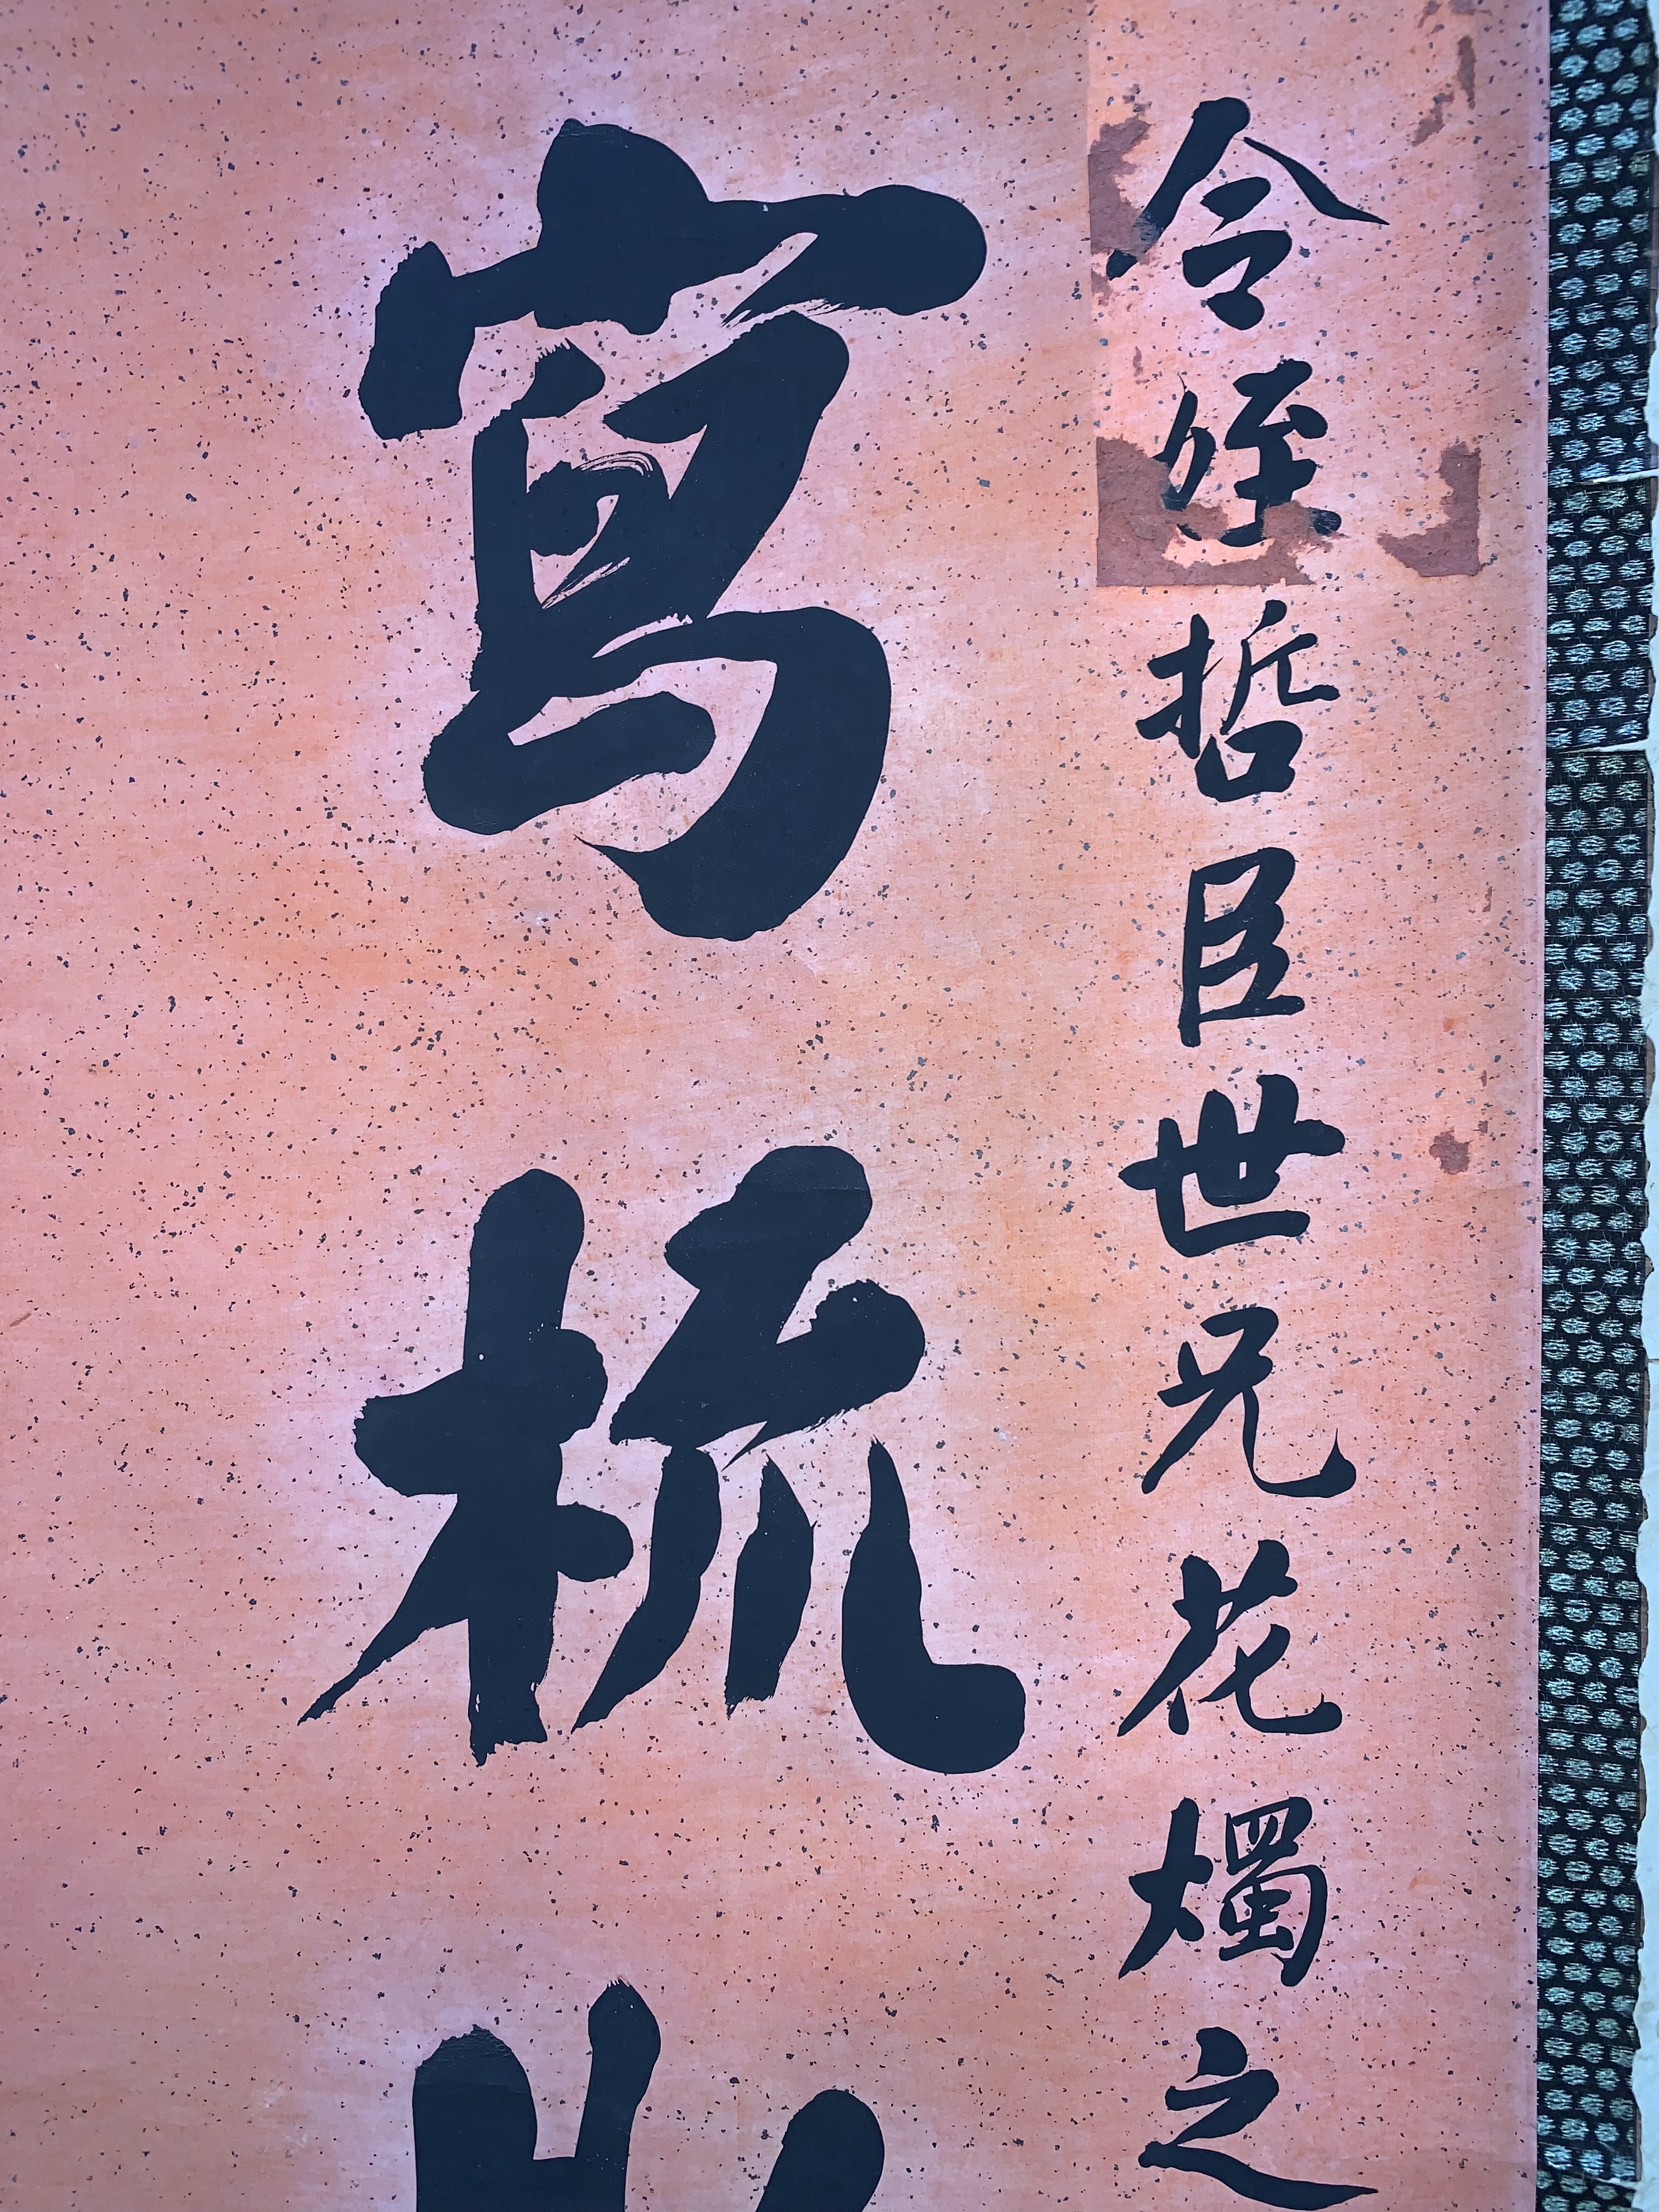 令姪哲臣世兄花燭之
寫梳